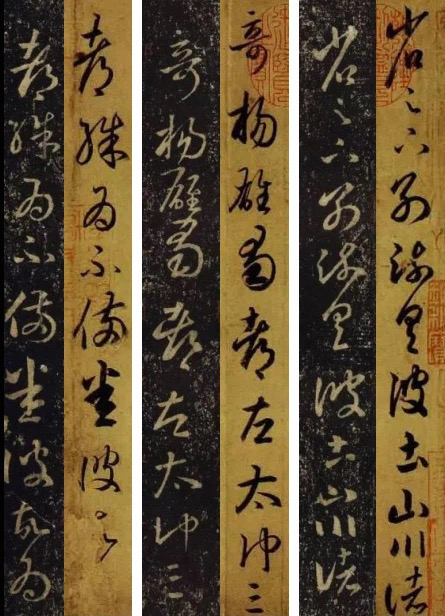 省足下別疏具彼土山川諸
省足下別疏具彼土山川諸
奇揚雄蜀都左太沖三
奇揚雄蜀都左太沖三
都殊為不備悉彼
都殊為不備悉彼故為